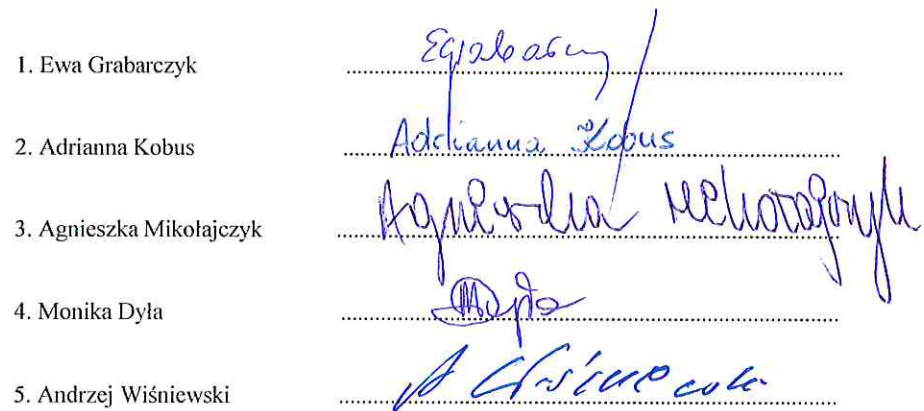 1. Ewa Grabarczyk
2. Adrianna Kobus Adrianna Kobus
3. Agnieszka Mikołajczyk Agnieszka Mikołajczyk
4. Monika Dyła
5. Andrzej Wiśniewski